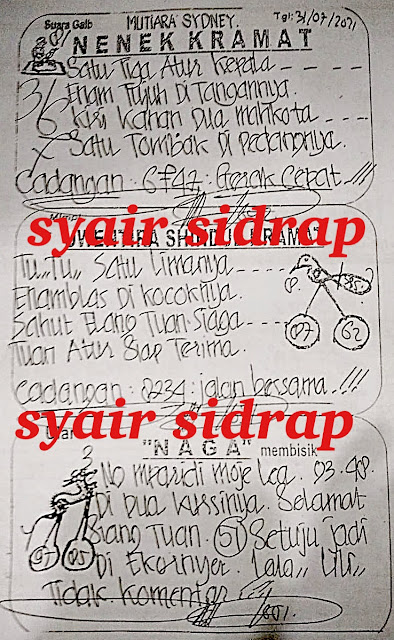 Suara Gaib MUTIARA SYDNEY. Tgl: 31/07/2021
NENEK KRAMAT
Satu Tiga Atur Kepala
36 Enam Tujuh Di Tangannya.
Kiri Kanan Dua Mahkota
7 Satu Tombak Di Pedangnya.
Cadangan: 6747: Gerak Cepat !!!
syair sidrap
KRAMAT
Tu,,Tu,, Satu Limanya
Enamblas Di kocoknya.
Sahut Elang Tuan Siaga
07 62
Tuan Atur Siap Terima.
Cadangan: 0234: jalan bersama.!!!
syair sidrap
"NAGA" membisik
No
Di Dua Kursinya. Selamat
Siang Tuan. 51 Setuju jadi
Di Lala,, Lili,,
Tidak Komentar